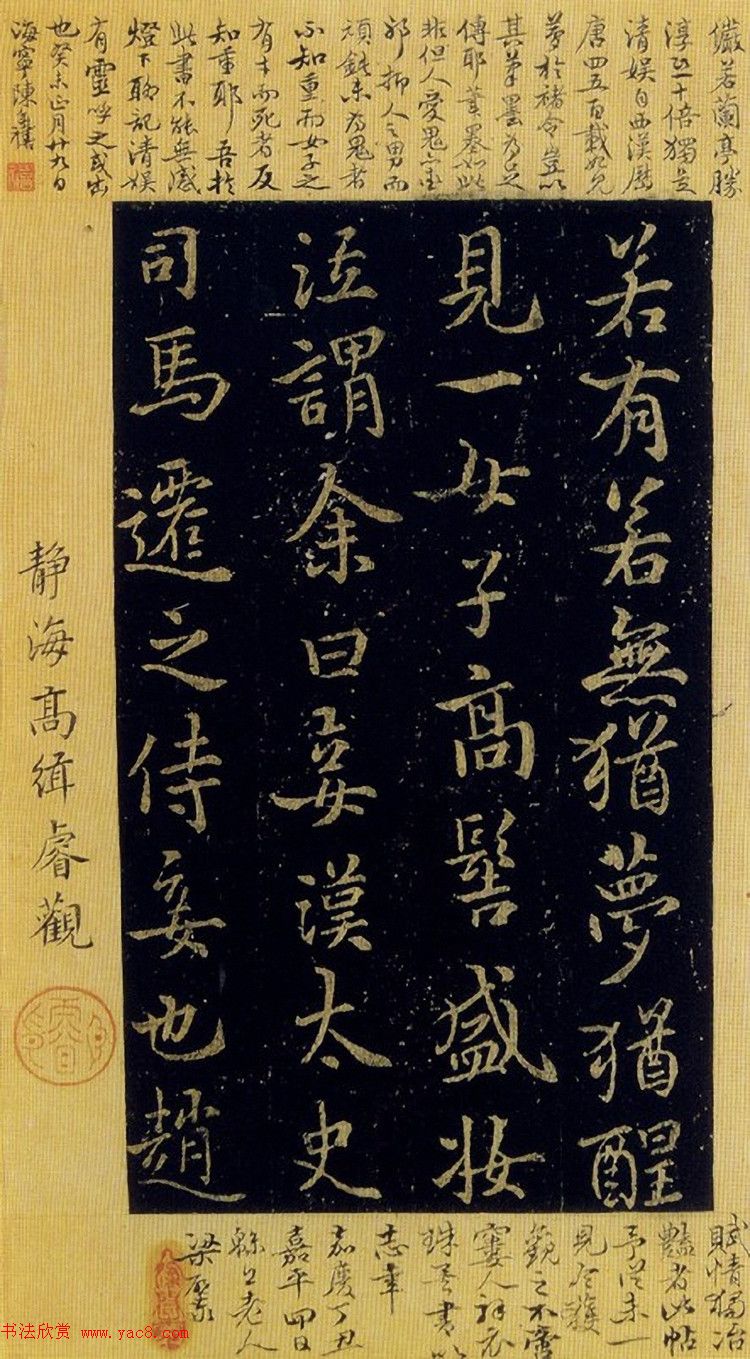 儼若蘭亭勝
淳化十倍獨是
清娱自西漢歷
唐四五百載始見
夢於褚令豈以
其筆墨為足
傳耶筆墨如此
非但人愛鬼亦
邪抑人之男而
頑鈍未為鬼者
不知重而女子之
有才而死者反
知重耶 吾於
此書不能無感
燈下聊記清娱
有靈呼之或出
也癸未正月廿九日
海寧陳奕禧
若有若無猶夢猶醒
見一女子高髻盛妝
泣謂余曰妾漢太史
司馬遷之侍妾也趙
靜海高緝睿觀
賦情獨冶
豔者此帖
予從未一
見今獲
觀之不啻
窶人衣
珠喜書以
志幸
嘉慶丁丑
嘉平四日
老人
梁
书法欣赏 www.yac8.com